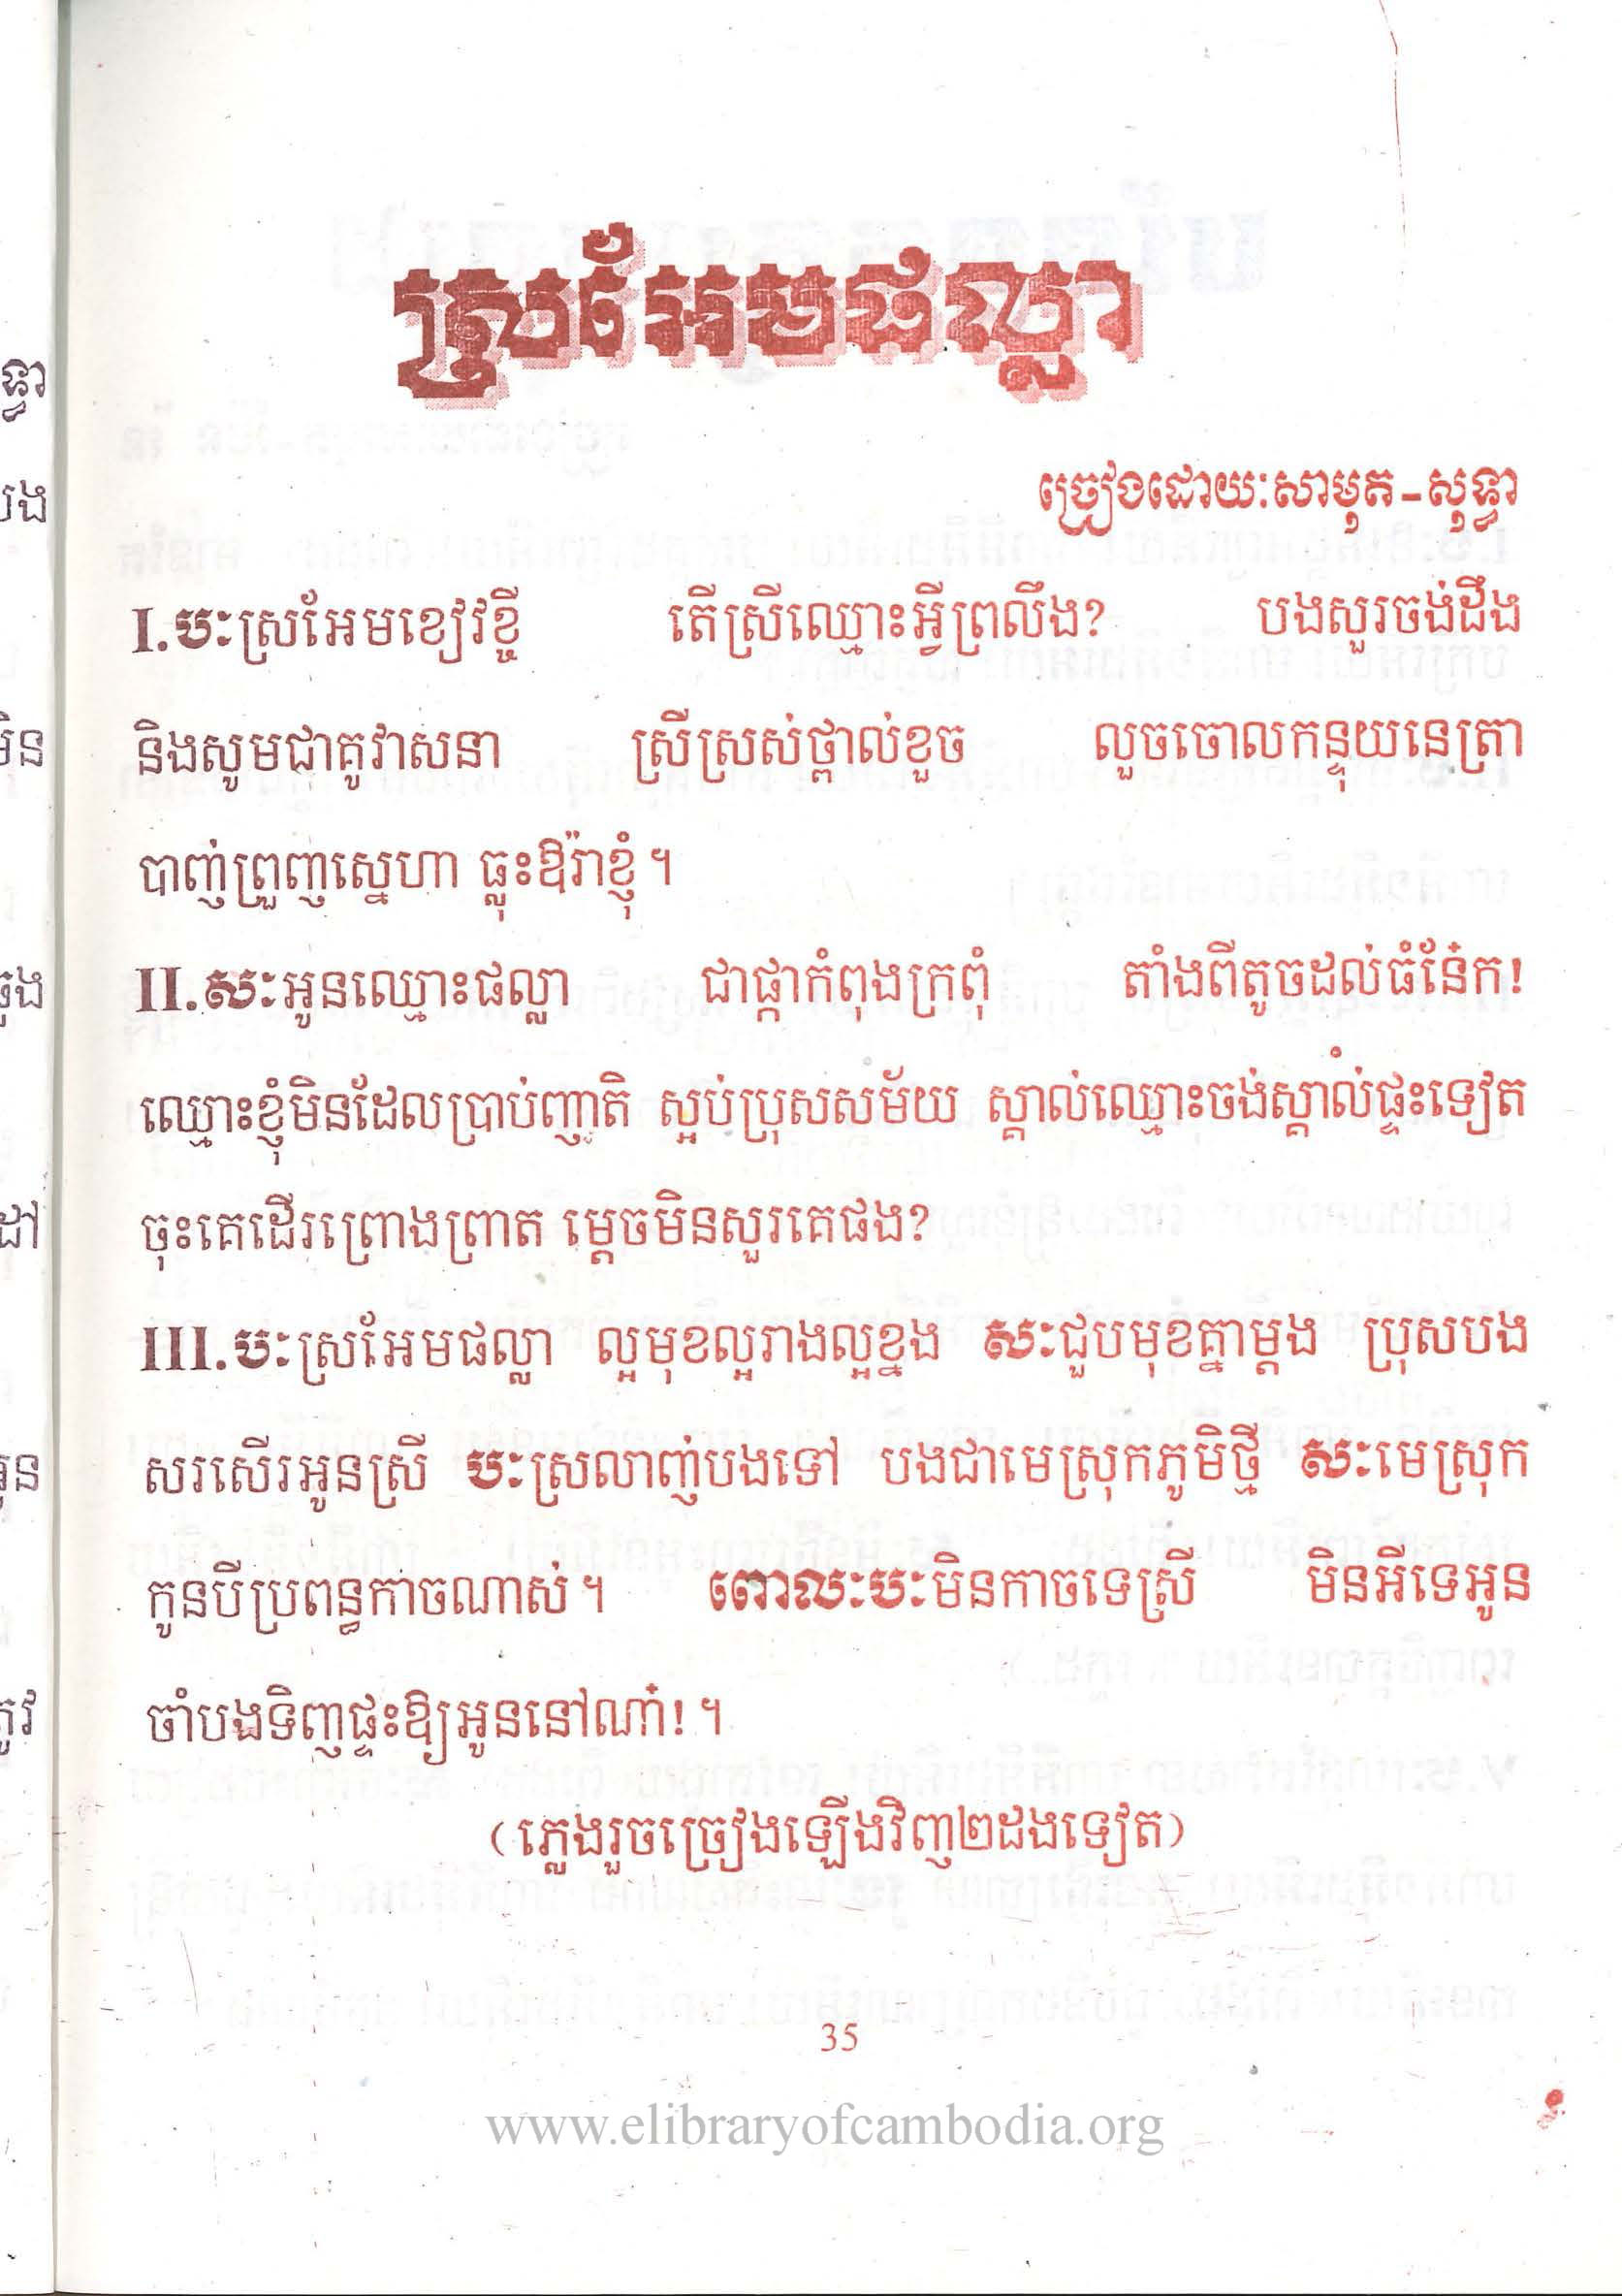 ស្រអែមផល្លា
ច្រៀងដោយ:សាមុត-សុទ្ធា
I.ប:ស្រអែមខៀវខ្ចី តើស្រីឈ្មោះអ្វីព្រលឹង? បងសួរចង់ដឹង
និងសូមជាគូវាសនា ស្រីស្រស់ថ្ពាល់ខួច លួចចោលកន្ទុយនេត្រា
បាញ់ព្រួញស្នេហា ធ្លុះឱរ៉ាខ្ញុំ។
II.ស:អូនឈ្មោះផល្លា ជាផ្កាកំពុងក្រពុំ តាំងពីតូចដល់ធំនែ៎ក!
ឈ្មោះខ្ញុំមិនដែលប្រាប់ញាតិ ស្អប់ប្រុសសម័យ ស្គាល់ឈ្មោះចង់ស្គាល់ផ្ទះទៀត
ចុះគេដើរព្រោងព្រាត ម្ដេចមិនសួរគេផង?
III.ប:ស្រអែមផល្លា ល្អមុខល្អរាងល្អខ្នង ស:ជួបមុខគ្នាម្ដង ប្រុសបង
សរសើរអូនស្រី ប:ស្រលាញ់បងទៅ បងជាមេស្រុកភូមិថ្មី ស:មេស្រុក
កូនបីប្រពន្ធកាចណាស់។ ពោល:ប:មិនកាចទេស្រី មិនអីទេអូន
ចាំបងទិញផ្ទះឱ្យអូននៅណា៎!។
(ភ្លេងរួចច្រៀងឡើងវិញ២ដងទៀត)
35
www.elibraryofcambodia.org